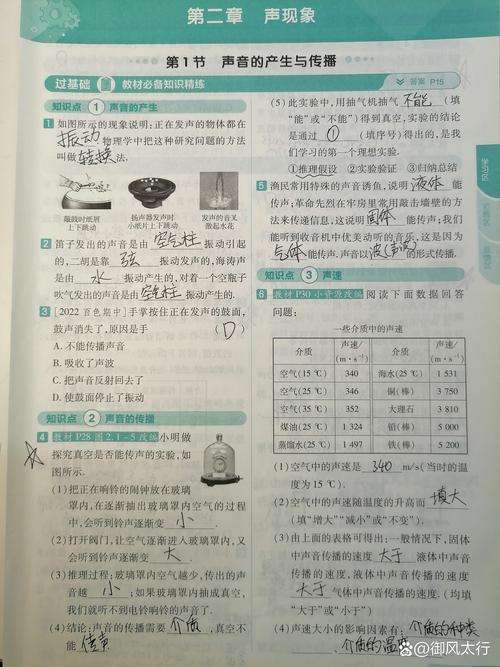 第二章 声现象
第1节 声音的产生与传播
过基础 教材必备知识精练
答案 P15
知识点 1 声音的产生
1 如图所示的现象说明:正在发声的物体都在
振动 物理学中把这种研究问题的方法
叫做 转换 法.
敲鼓时纸屑 上下跳动
扬声器发声时 小纸片上下跳动
发声的音叉 激起水花
2 笛子发出的声音是由 空气柱 振动引起
的,二胡是靠 弦 振动发声的,海涛声
是由 水 振动产生的,对着一个空瓶子
吹气发出的声音是由 空气柱 振动产生的.
3 [2022百色期中]手掌按住正在发声的鼓面,
鼓声消失了,原因是手 (D)
A. 不能传播声音
B. 吸收了声波
C. 把声音反射回去了
D. 使鼓面停止了振动
知识点 2 声音的传播
4 教材P28图2.1-5改编 小明做
探究真空是否能传声的实验,如
图所示.
(1)把正在响铃的闹钟放在玻璃
罩内,在逐渐抽出玻璃罩内空气的过程
中,会听到铃声逐渐变 小 .
(2)打开阀门,让空气逐渐进入玻璃罩内,又
会听到铃声逐渐变 大 .
(3)推理过程:玻璃罩内空气越少,传出的声
音越 小 ;如果玻璃罩内抽成真空,
我们就听不到电铃响铃的声音了.
(4)结论:声音的传播需要 介质 ,真空不
能 传声
(5)此实验中,用抽气机抽气 不能 (填
“能”或“不能”)得到真空,实验的结论
是通过 ① (填序号)得出的,是我
们学习的第一个理想实验.
①推理假设 ②实验验证 ③归纳总结
5 渔民常用特殊的声音诱鱼,说明 液体 能
传声;革命先烈在牢房里常用敲击墙壁的方
法来传递信息,这说明 固体 能传声;我们
能听到收音机中优美动听的音乐,这是因为
气体 能传声.声音以 波(声波) 的形式传播.
知识点 3 声速
6 教材P30小资源改编 阅读下面数据回答
问题:
一些介质中的声速
介质 声速/(m·s⁻¹) 介质 声速/(m·s⁻¹)
空气(15 ℃) 340 海水(25 ℃) 1 531
空气(25 ℃) 346 铜(棒) 3 750
空气(35 ℃) 352 大理石 3 810
煤油(25 ℃) 1 324 铅(棒) 5 000
蒸馏水(25 ℃) 1 497 铁(棒) 5 200
(1)空气中的声速是 340 m/s(当时的温
度为15 ℃).
(2)空气中的声速随温度的升高而 增大
(填“增大”“减小”或“不变”).
(3)由上面的表格可得出:一般情况下,固体
中声音传播的速度 大于 液体中声音
传播的速度,液体中声音传播的速度
大于 气体中声音传播的速度.(均填
“大于”或“小于”)
(4)声速大小的影响因素有: 介质的种类
、介质的温度
学习区
@御风太行